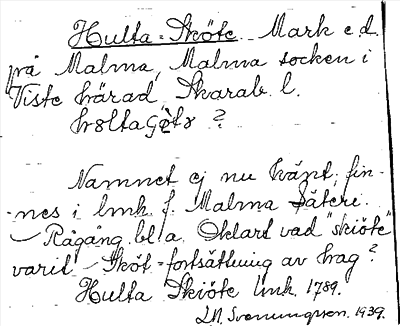 Hulta-Sköte Mark e.d.
på Malma, Malma socken i
Viste härad Skarab. l.
?
Namnet ej nu känt; fin-
-nes i lmk. f. Malma Säteri.
– Rågång bl.a. Oklart vad "skiöte"
varit – Sköt = fortsättning av hag?
Hulta Skiöte lmk. 1789.
Svenungsson. 1939.